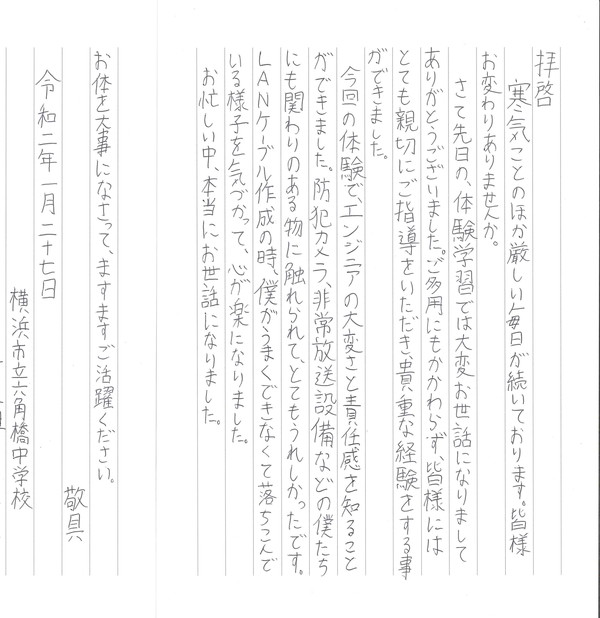 拝啓
寒気ことのほか厳しい毎日が続いております。皆様
お変わりありませんか。
さて先日の、体験学習では大変お世話になりまして
ありがとうございました。ご多用にもかかわらず、皆様には
とても親切にご指導をいただき、貴重な経験をする事
ができました。
今回の体験で、エンジニアの大変さと責任感を知ること
ができました。防犯カメラ、非常放送設備などの僕たち
にも関わりのある物に触れられて、とてもうれしかったです。
LANケーブル作成の時、僕がうまくできなくて落ちこんで
いる様子を気づかって、心が楽になりました。
お忙しい中、本当にお世話になりました。
お体を大事になさって、ますますご活躍ください。
敬具
令和二年一月二十七日
横浜市立六角橋中学校